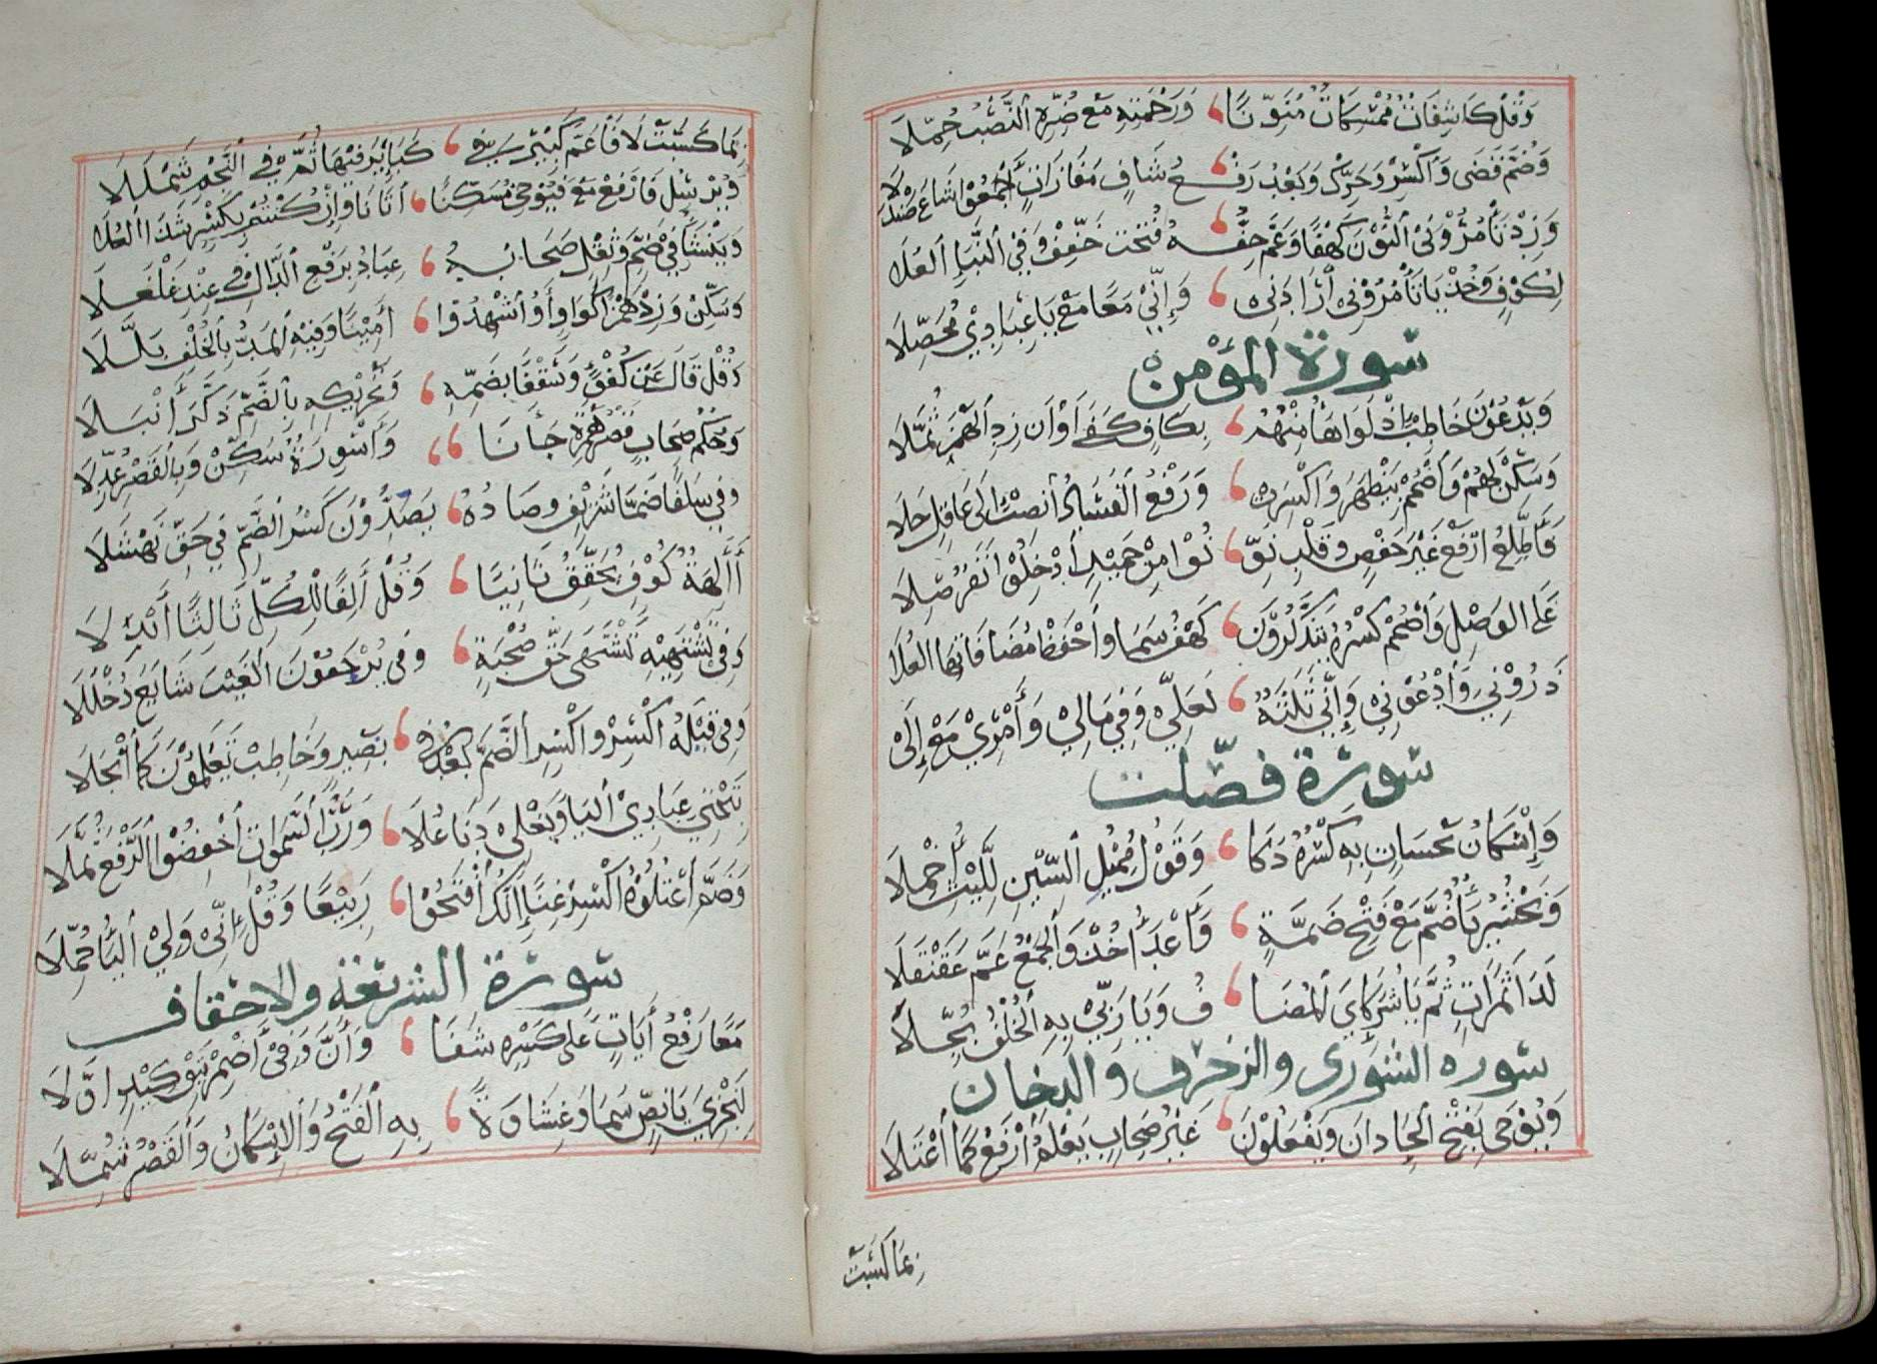 وَقُلْ كَاشِفَاتٌ مُمْسِكَاتٌ مُنَوِّنًا ، وَرَحْمَتِهِ مَعْ ضُرِّهِ النَّصْبُ حُمِّلَا
وَضُمَّ قَضَى وَاكْسِرْ وَحَرِّكْ وَبَعْدُ رَفْـ ، ـعُ شَافٍ مَفَازَاتٍ اجْمَعُوا شَاعَ صَنْدَلَا
وَزِدْ تَأْمُرُوْنِي النُّوْنَ كَهْفًا وَعَمَّ خِفُّـ ، ـهُ فُتِّحَتْ خَفِّفْ وَفِي النَّبَإِ الْعُلَا
لِكُوْفٍ وَخُذْ يَا تَأْمُرُوْنِي أَرَادَنِي ، وَإِنِّي مَعًا مَعْ يَا عِبَادِيْ مُحَصِّلَا
سورة المؤمن
وَيَدْعُوْنَ خَاطِبْ إِذْ لَوَا هَاءُ مِنْهُمُ ، بِكَافٍ كَفَى أَوْ أَنْ زِدِ الْهَمْزَ ثُمَّلَا
وَسَكِّنْ لَهُمْ وَاضْمُمْ بِيَظْهَرَ وَاكْسِرَنْ ، وَرَفْعُ الْفَسَادَ انْصِبْ إِلَى عَاقِلٍ حَلَا
فَأَطَّلِعُ ارْفَعْ غَيْرَ حَفْصٍ وَقَلْبِ نَوِّ ، نُوْا مِنْ حَمِيْدٍ أَدْخِلُوْا نَفَرٌ صِلَا
عَلَى الْوَصْلِ وَاضْمُمْ كَسْرَهُ يَتَذَكَّرُوْنَ ، كَهْفٌ سَمَا وَاحْفَظْ مُضَافَاتِهَا الْعُلَا
ذَرُوْنِي وَادْعُوْنِي وَإِنِّي ثَلَثَةٌ ، لَعَلِّي وَفِي مَالِي وَأَمْرِيْ مَعْ إِلَى
سورة فصّلت
وَإِسْكَانُ نَحْسَاتٍ بِهِ كَسْرُهُ ذَكَا ، وَقَوْلُ مُمِيْلِ السِّيْنِ لِلَّيْثِ أُخْمِلَا
وَنَحْشُرُ يَاءٌ ضُمَّ مَعْ فَتْحِ ضَمَّةٍ ، وَأَعْدَاءُ خُذْ وَالْجَمْعُ عَمَّ عَقَنْقَلَا
لَدَا ثَمَرَاتٍ ثُمَّ يَا شُرَكَايَ الْمُضَا ، فُ وَيَا رَبِّي بِهِ الْخُلْفُ بُجِّلَا
سوره الشورى والزخرف والدخان
وَيُوْحَى بِفَتْحِ الْحَاءِ دَانَ وَيَفْعَلُوْنَ ، غَيْرُ صِحَابٍ يَعْلَمُ ارْفَعْ كَمَا اعْتَلَا
بما كسبت
بِمَا كَسَبَتْ لَا فَاءَ عَمَّ كَبِيْرَ فِي ، كَبَائِرَ فِيْهَا ثُمَّ فِي النَّجْمِ شَمْلَلَا
وَيُرْسِلَ فَارْفَعْ مَعْ فَيُوْحِيْ مُسَكِّنًا ، أَتَانَا وَإِنْ كُنْتُمْ بِكَسْرٍ شَذَا الْعُلَا
وَيَنْشَأُ فِي ضَمٍّ وَثِقْلٍ صِحَابُهُ ، عِبَادُ بِرَفْعِ الدَّالِ فِي عِنْدَ غَلْغَلَا
وَسَكِّنْ وَزِدْ هَمْزًا كَوَاوٍ أَوُشْهِدُوْا ، أَمِيْنًا وَفِيْهِ الْمَدُّ بِالْخُلْفِ بَلَّلَا
وَقُلْ قَالَ عَنْ كُفْؤٍ وَسَقْفًا بِضَمِّهِ ، وَتَحْرِيْكِهِ بِالضَّمِّ ذَكَّرَ أَنْبَلَا
وَحُكْمُ صِحَابٍ قَصْرُ هَمْزَةِ جَاءَنَا ، ، وَأَسْوِرَةٌ سَكِّنْ وَبِالْقَصْرِ عُدِّلَا
وَفِي سَلَفًا ضَمَّا شَرِيْفٍ وَصَادُهُ ، يَصُدُّوْنَ كَسْرُ الضَّمِّ فِي حَقِّ نَهْشَلَا
أَأَالِهَةٌ كُوْفٍ يُحَقِّقُ ثَانِيًا ، وَقُلْ أَلِفًا لِلْكُلِّ ثَالِثًا أُبْدِلَا
وَفِي تَشْتَهِيْهِ تَشْتَهِي حَقُّ صُحْبَةٍ ، وَفِي يُرْجَعُوْنَ الْغَيْبَ شَايَعَ دُخْلُلَا
وَفِي قِيْلَهُ اكْسِرْ وَاكْسِرِ الضَّمَّ بَعْدُ فِي ، نَصِيْرٍ وَخَاطِبْ تَعْلَمُوْنَ كَمَا انْجَلَا
بِتَحْتِي عِبَادِيْ الْيَا وَيَغْلِي دَنَا عُلَا ، وَرَبُّ السَّمَوَاتِ اخْفِضُوْا الرَّفْعَ ثُمَّلَا
وَضَمَّ اعْتِلُوْهُ اكْسِرْ غِنًا إِنَّكَ افْتَحُوْا ، رَبِيْعًا وَقُلْ إِنِّي وَلِيْ الْيَاءُ حُمِّلَا
سورة الشريعة والاحقاف
مَعًا رَفْعُ آيَاتٍ عَلَى كَسْرِهِ شَفَا ، وَأَنَّ وَفِيْ أَضْمِرْ بِتَوْكِيْدٍ اوَّلَا
لِنَجْزِيَ يَا نَصٍّ سَمَا وَغِشَاوَةً ، بِهِ الْفَتْحُ وَالْإِسْكَانُ وَالْقَصْرُ شُمِّلَا